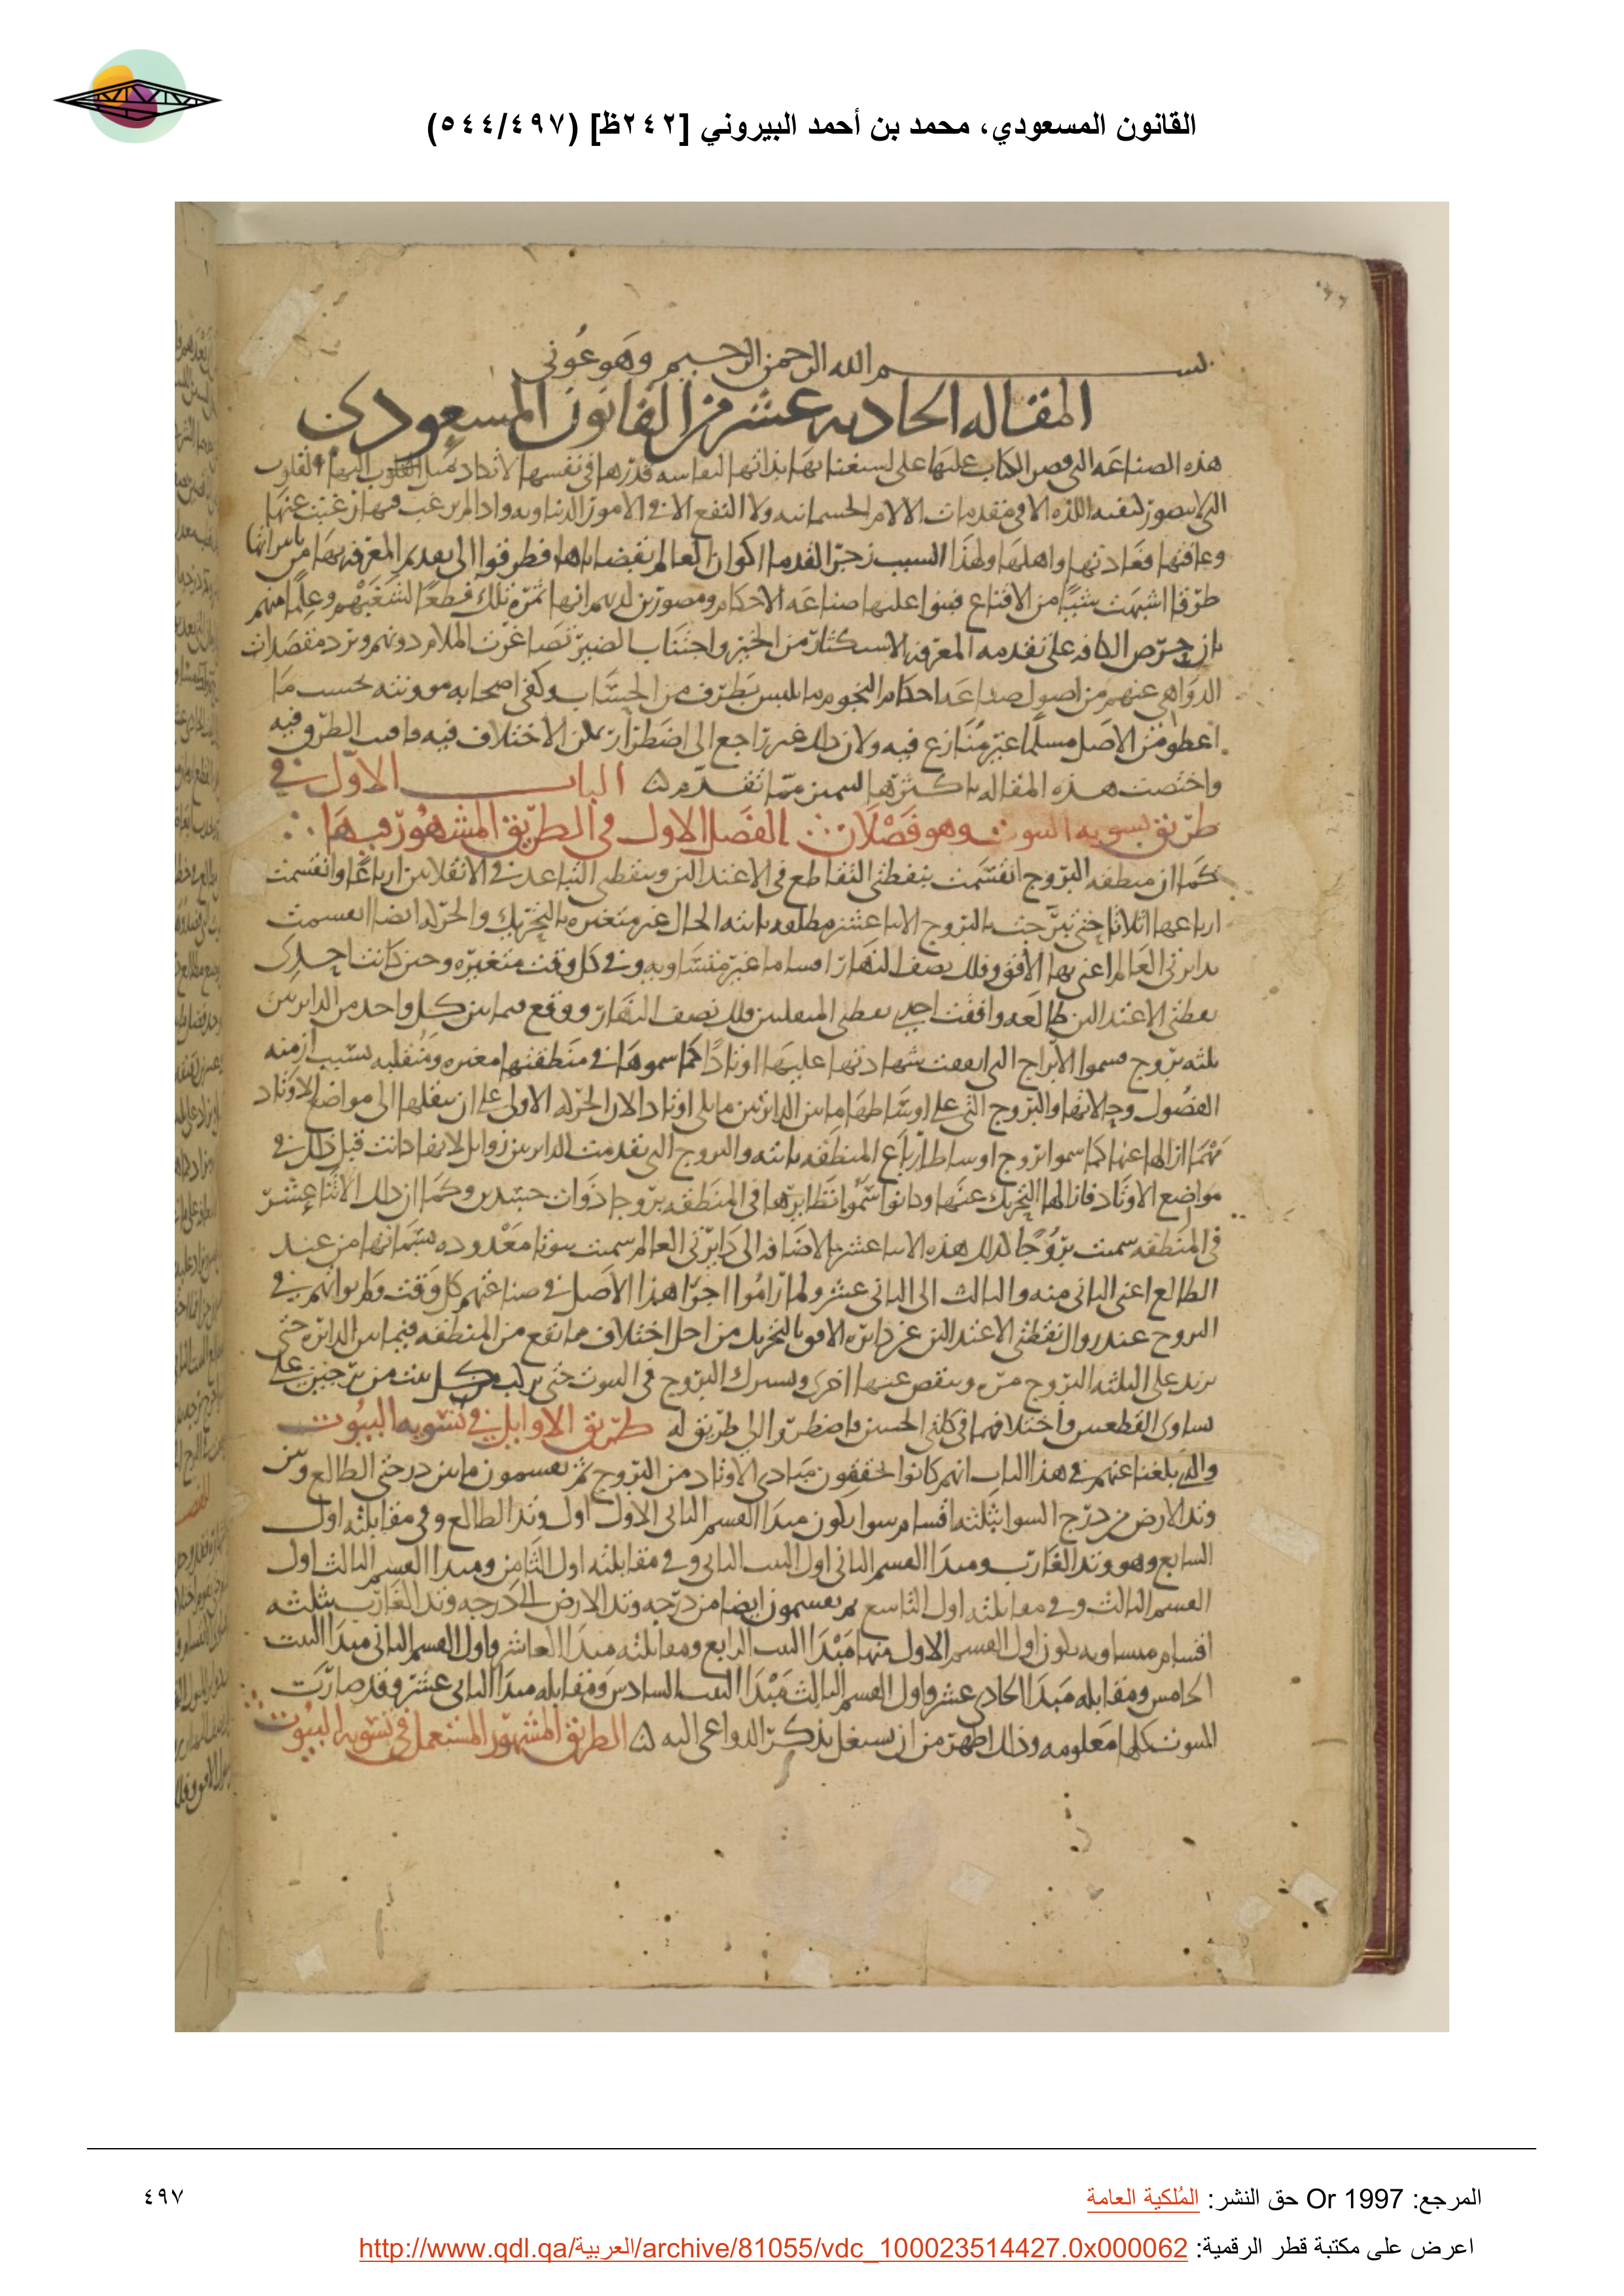 القانون المسعودي، محمد بن أحمد البيروني [٢٤٢ظ] (٥٤٤/٤٩٧)
بسم الله الرحمن الرحيم وهو عوني
المقاله الحاديه عشر من القانون المسعودي
هذه الصناعه التي قصر الكتاب عليها على استغنائها بذاتها لنفاسه قدرها في نفسها لا تكاد تميل القلوب اليها القلوب
التي لا تتصور لنفسه اللذه الا في مقدمات الالام الجسمانيه ولا النفع الا في الامور الدنياويه واذا لم يرغب فيها رغبت عنها
وعافتها فعادتها واهلها ولهذا السبب زجر القدما اكوان العالم بقضاياها فطرقوا الى تقديم المعرفه بها من تاثيراتها
طرقا اشبهت شيئا من الاقناع فبنوا عليها صناعه الاحكام ومصورين لديهم انها ثمره تلك قطعا لشغبهم وعلما منهم
بان حرص الكافه على تقدمه المعرفه للاستكثار من الخير واجتناب الضير تصاغرت الملام دونهم وترد مقصدات
الدواهي عنهم من اصول صناعه احكام النجوم ما يلتبس بطرف من الحساب وكفى اصحابه موونته بحسب ما
اعطوه من الاصل مسلما غير منازع فيه ولان ذلك غير راجع الى اضطرار يمكن الاختلاف فيه الطرق فيه
واختصت هذه المقاله باكثرها السمين مما تقدم ه الباب الاول في
طريق تسويه البيوت وهو فصلان الفصل الاول في الطريق المشهور فيها
كما ان منطقه البروج انقسمت بنقطتي التقاطع في الاعتدالين وبنقطتي التباعد في الانقلابين ارباعا وانقسمت
ارباعها اثلاثا حتى تبرجت بالبروج الاثنا عشر مطلقه ثابته الحال غير متغيره بالتحريك والحركه ايضا انقسمت
بدايرتي العالم اعني بها الافق وفلك نصف النهار اقساما غير متساويه وفي كل وقت متغيره وحين كانت احدى
نقطتي الاعتدالين طالعه وافقت احدى نقطتي المنقلبين فلك نصف النهار ووقع فيما بين كل واحد من الدايرتين
ثلثه بروج فسموا الابراج التي اتفقت شهادتها عليها اوتادا كما سموها في منطقتها متغيره ومنقلبه بسبب ازمنه
الفصول وحالاتها والبروج التي على اوساطها ما بين الدايرتين ما يلي اوتاد لان الحركه الاولى على ان ينقلها الى مواضع الاوتاد
مهما ازالها عنها كما سموا بروج اوساط ارباع المنطقه ثابته والبروج التي تقدمت الدايرتين زوايل لانها كانت قبل ذلك في
مواضع الاوتاد فازالها التحريك عنها وكانوا سموا نظايرها في المنطقه بروجا ذوات جسدين وكما ان ذلك الاثنا عشر
في المنطقه سميت بروجا كذلك هذه الاثنا عشر بالاضافه الى دايرتي العالم سميت بيوتا معدوده بسماتها من عند
الطالع اعني الثاني منه والثالث الى الثاني عشر ولما راموا اجرا هذا الاصل في صناعتهم كل وقت
البروج عند زوال نقطتي الاعتدالين عن دايره الافق بالتحريك من اجل اختلاف ما تقع من المنطقه فيما بين الدايره حتى
يزيد على الثلثه البروج مره وينقص عنها اخرى ويشترك البروج في البيوت حتى يركب كل بيت من برجين على
تساوي القطعتين واختلافهما في كلتي الجنبين فاضطروا الى طريق له طريق الاوايل في تسويه البيوت
والذي بلغنا عنهم في هذا الباب انهم كانوا يحققون مبادي الاوتاد من البروج ثم يقسمون ما بين درجتي الطالع وبين
وتد الارض من درج السوا بثلثه اقسام سوا يكون مبدا القسم الاول اول وتد الطالع وفي مقابلته اول
السابع وهو وتد الغارب ومبدا القسم الثاني اول البيت الثاني وفي مقابلته اول الثامن ومبدا القسم الثالث اول
القسم الثالث وفي مقابلته اول التاسع ثم يقسمون ايضا من درجه وتد الارض الى درجه وتد الغارب بثلثه
اقسام متساويه يكون اول القسم الاول منها مبدا البيت الرابع ومقابلته مبدا العاشر واول القسم الثاني مبدا البيت
الخامس ومقابله مبدا الحادي عشر واول القسم الثالث مبدا البيت السادس ومقابله مبدا الثاني عشر وقد صارت
البيوت كلها معلومه وذلك اظهر من ان يشتغل بذكر الدواعي اليه ه الطريق المشهور المستعمل في تسويه البيوت
المرجع: Or 1997 حق النشر: المُلكية العامة
٤٩٧
اعرض على مكتبة قطر الرقمية: http://www.qdl.qa/العربية/archive/81055/vdc_100023514427.0x000062